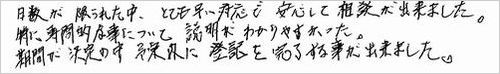 日数が限られた中、とても早い対応で安心して相談が出来ました。
特に専門的な事について説明がわかりやすかった。
期間が決定の中予定以内に登記を完了する事が出来ました。